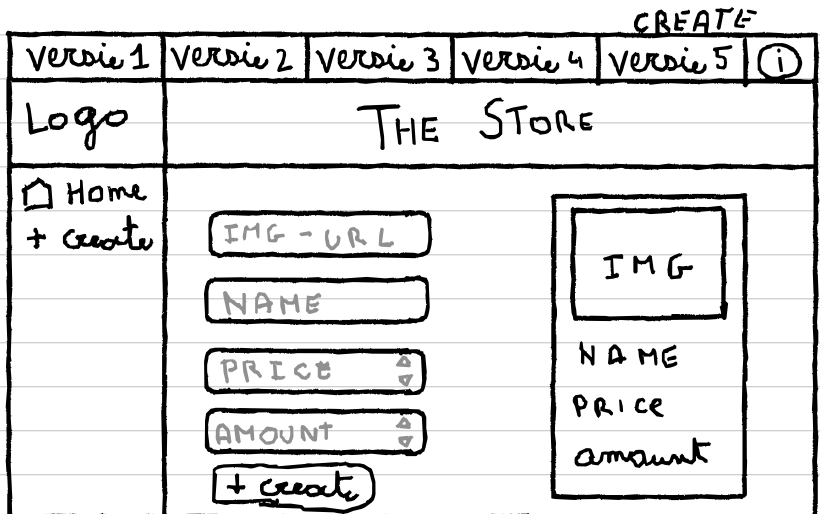 CREATE
Versie 1 Versie 2 Versie 3 Versie 4 Versie 5 i
Logo THE STORE
Home
+ create
IMG - URL
NAME
PRICE
AMOUNT
+ create
IMG
NAME
PRICE
amount